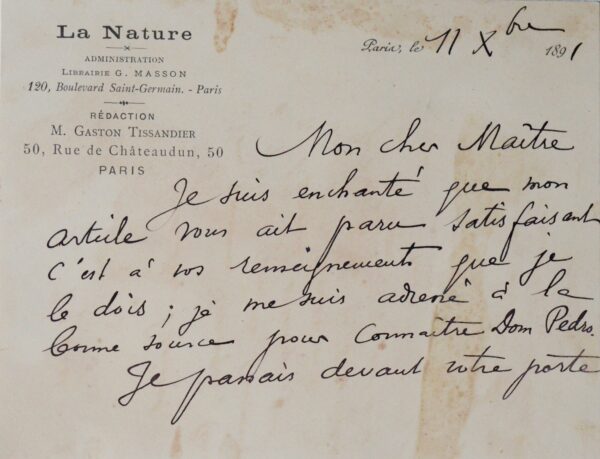 La Nature
ADMINISTRATION
LIBRAIRIE G. MASSON
120, Boulevard Saint-Germain. - Paris
RÉDACTION
M. GASTON TISSANDIER
50, Rue de Châteaudun, 50
PARIS
Paris, le 11 Xbre 1891
Mon cher Maître
Je suis enchanté que mon
article vous ait paru satisfaisant
c'est à vos renseignements que je
le dois ; je me suis adressé à la
bonne source pour connaître Dom Pedro.
Je passais devant votre porte